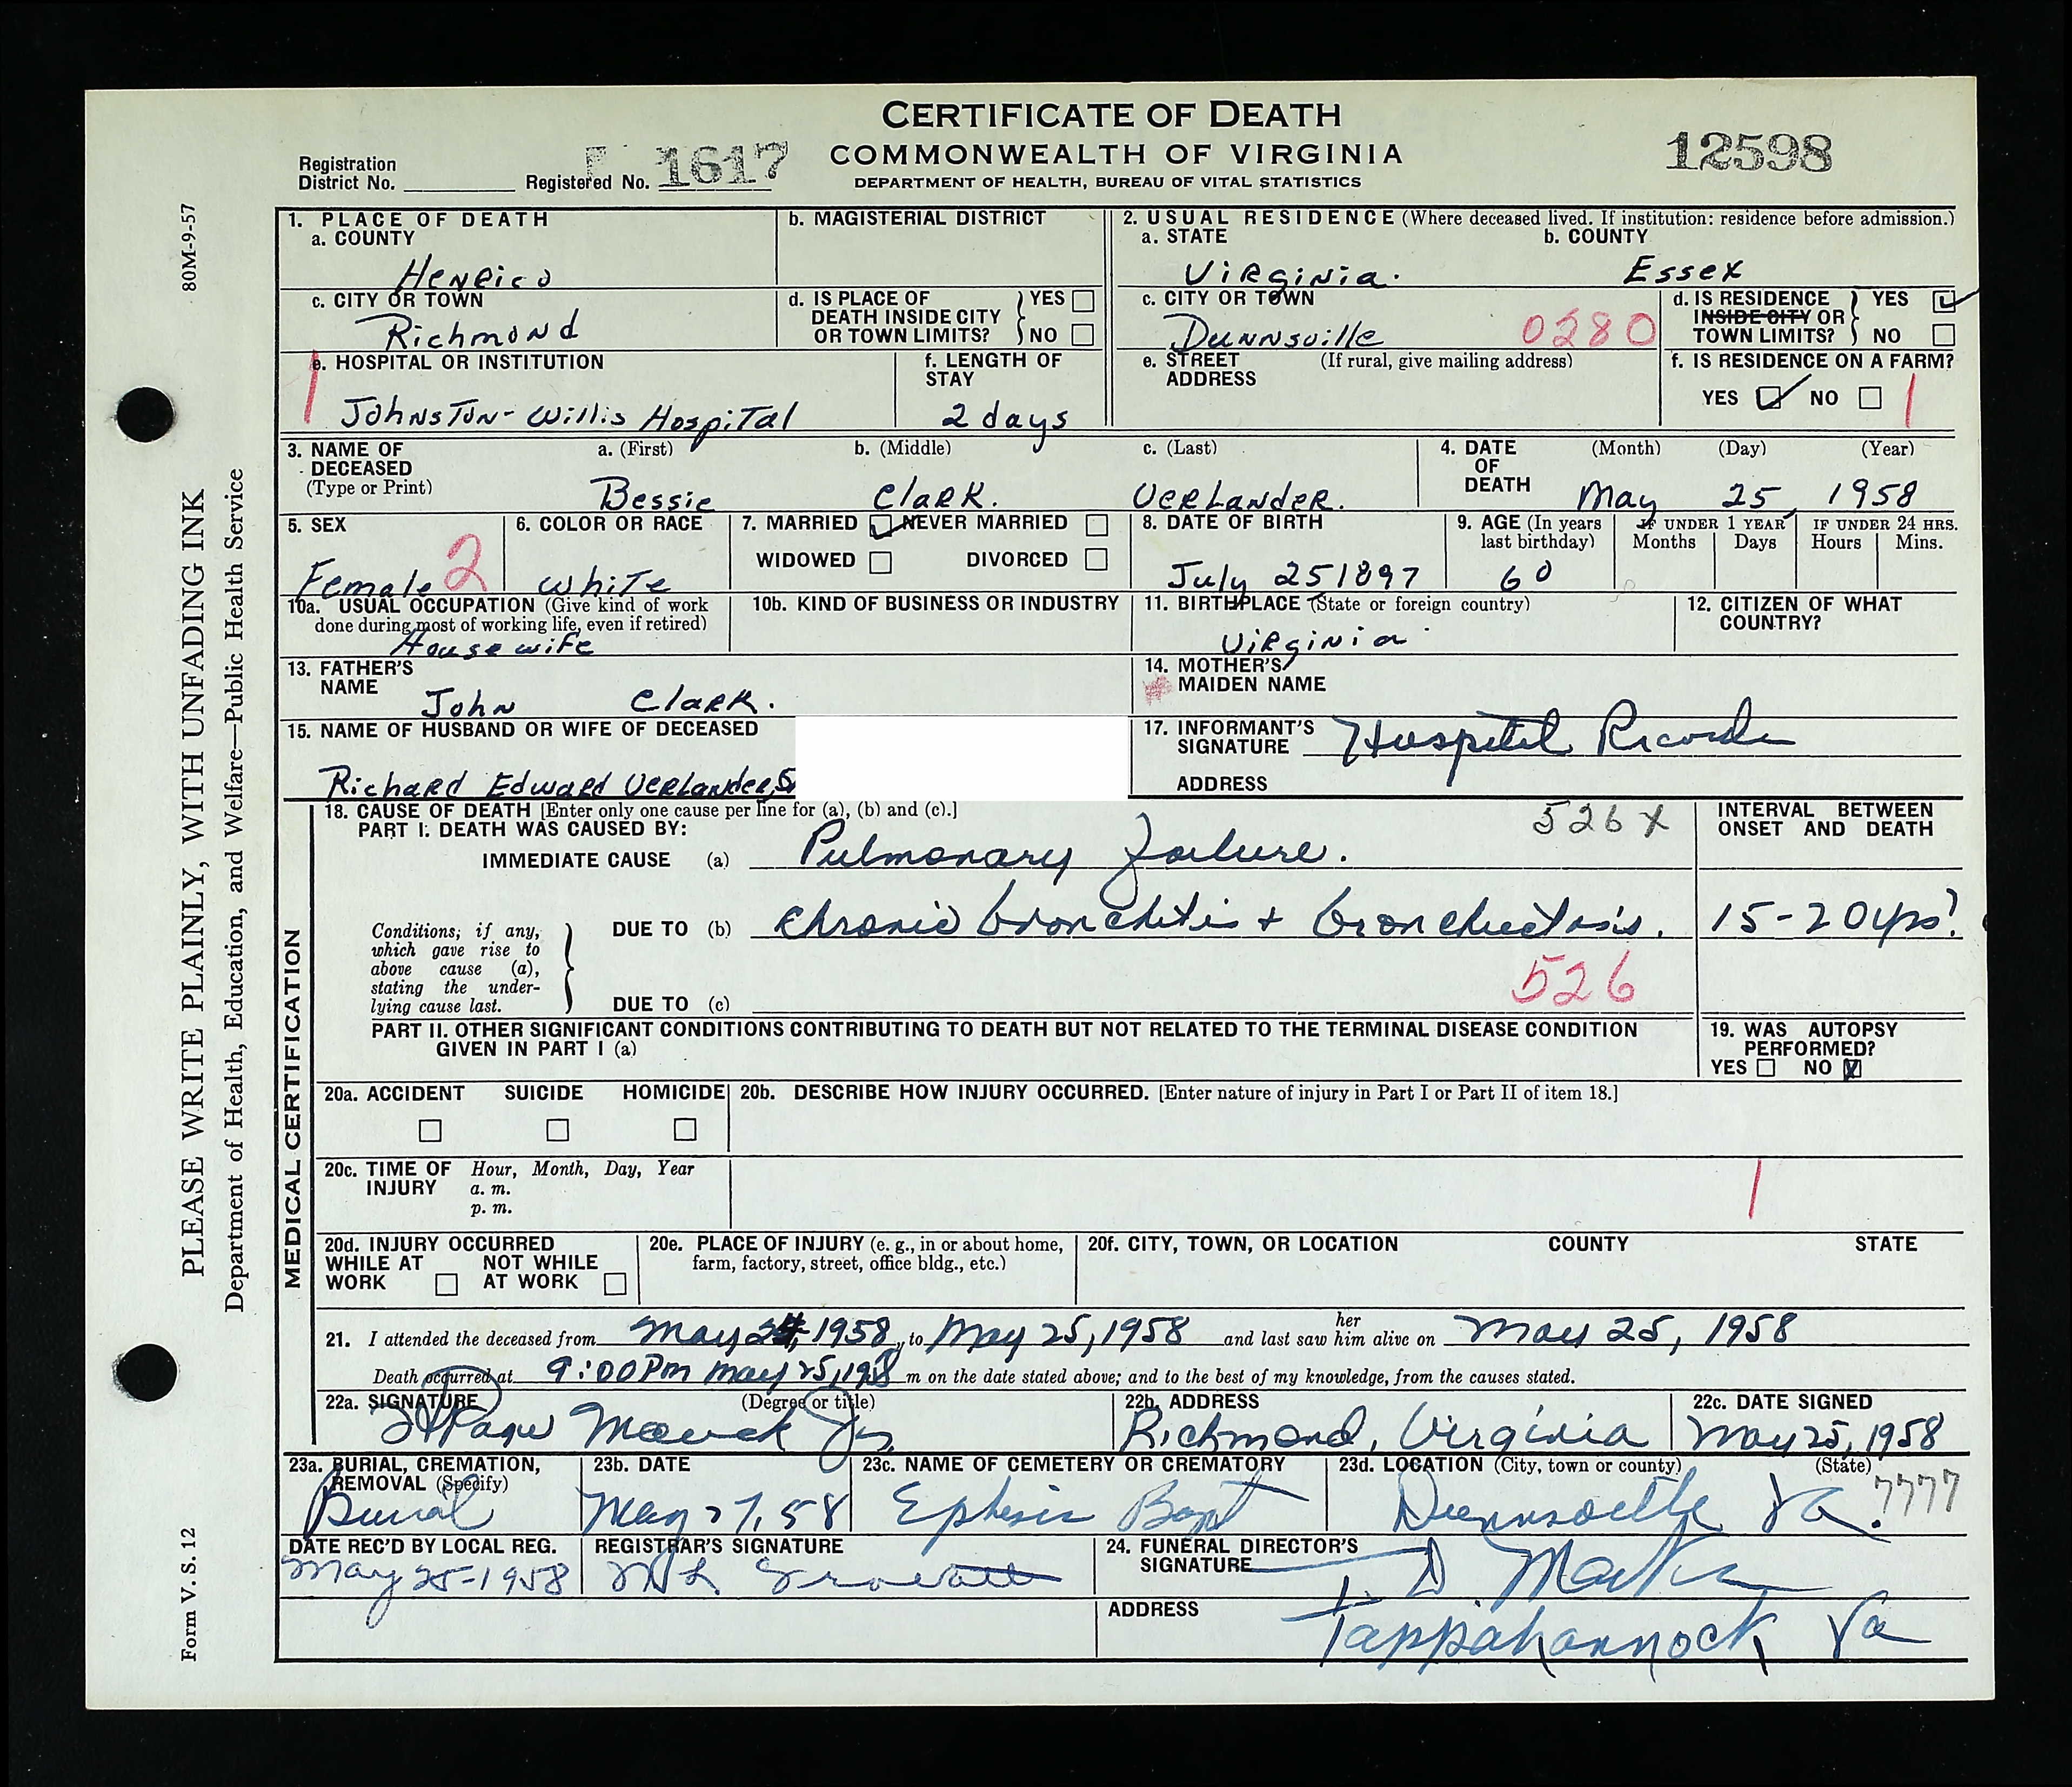 CERTIFICATE OF DEATH
COMMONWEALTH OF VIRGINIA
DEPARTMENT OF HEALTH, BUREAU OF VITAL STATISTICS
12598
Registration District No. Registered No. 1617
80M-9-57
PLEASE WRITE PLAINLY, WITH UNFADING INK
Department of Health, Education, and Welfare—Public Health Service
Form V. S. 12
1. PLACE OF DEATH
a. COUNTY
Henrico
b. MAGISTERIAL DISTRICT
2. USUAL RESIDENCE (Where deceased lived. If institution: residence before admission.)
a. STATE
Virginia.
b. COUNTY
Essex
c. CITY OR TOWN
Richmond
d. IS PLACE OF DEATH INSIDE CITY OR TOWN LIMITS? YES NO
c. CITY OR TOWN
Dunnsville 0280
d. IS RESIDENCE INSIDE CITY OR TOWN LIMITS? YES NO
1
e. HOSPITAL OR INSTITUTION
Johnston-Willis Hospital
f. LENGTH OF STAY
2 days
e. STREET ADDRESS (If rural, give mailing address)
f. IS RESIDENCE ON A FARM?
YES NO 1
3. NAME OF DECEASED (Type or Print)
a. (First) b. (Middle) c. (Last)
Bessie Clark. Verlander.
4. DATE OF DEATH (Month) (Day) (Year)
May 25, 1958
5. SEX
Female 2
6. COLOR OR RACE
White
7. MARRIED NEVER MARRIED
WIDOWED DIVORCED
8. DATE OF BIRTH
July 25 1897
9. AGE (In years last birthday)
60
IF UNDER 1 YEAR Months Days
IF UNDER 24 HRS. Hours Mins.
10a. USUAL OCCUPATION (Give kind of work done during most of working life, even if retired)
Housewife
10b. KIND OF BUSINESS OR INDUSTRY
11. BIRTHPLACE (State or foreign country)
Virginia
12. CITIZEN OF WHAT COUNTRY?
13. FATHER'S NAME
John Clark.
14. MOTHER'S MAIDEN NAME
15. NAME OF HUSBAND OR WIFE OF DECEASED
Richard Edward Verlander, S
17. INFORMANT'S SIGNATURE Hospital Records
ADDRESS
MEDICAL CERTIFICATION
18. CAUSE OF DEATH [Enter only one cause per line for (a), (b) and (c).]
PART I. DEATH WAS CAUSED BY:
526 X
INTERVAL BETWEEN ONSET AND DEATH
IMMEDIATE CAUSE (a) Pulmonary failure.
Conditions, if any, which gave rise to above cause (a), stating the underlying cause last.
DUE TO (b) Chronic bronchitis + bronchiectasis. 15-20 yrs?
526
DUE TO (c)
PART II. OTHER SIGNIFICANT CONDITIONS CONTRIBUTING TO DEATH BUT NOT RELATED TO THE TERMINAL DISEASE CONDITION GIVEN IN PART I (a)
19. WAS AUTOPSY PERFORMED?
YES NO
20a. ACCIDENT SUICIDE HOMICIDE
20b. DESCRIBE HOW INJURY OCCURRED. [Enter nature of injury in Part I or Part II of item 18.]
20c. TIME OF INJURY Hour, Month, Day, Year
a. m.
p. m.
1
20d. INJURY OCCURRED
WHILE AT WORK NOT WHILE AT WORK
20e. PLACE OF INJURY (e. g., in or about home, farm, factory, street, office bldg., etc.)
20f. CITY, TOWN, OR LOCATION COUNTY STATE
21. I attended the deceased from May 24, 1958, to May 25, 1958 and last saw her him alive on May 25, 1958
Death occurred at 9:00 Pm May 25, 1958 m on the date stated above; and to the best of my knowledge, from the causes stated.
22a. SIGNATURE (Degree or title)
Page Mauck Jr.
22b. ADDRESS
Richmond, Virginia
22c. DATE SIGNED
May 25, 1958
23a. BURIAL, CREMATION, REMOVAL (Specify)
Burial
23b. DATE
May 27, 58
23c. NAME OF CEMETERY OR CREMATORY
Ephesis Bapt
23d. LOCATION (City, town or county) (State)
Dunnsville Va. 7777
DATE REC'D BY LOCAL REG.
May 25-1958
REGISTRAR'S SIGNATURE
24. FUNERAL DIRECTOR'S SIGNATURE
ADDRESS
Tappahannock Va